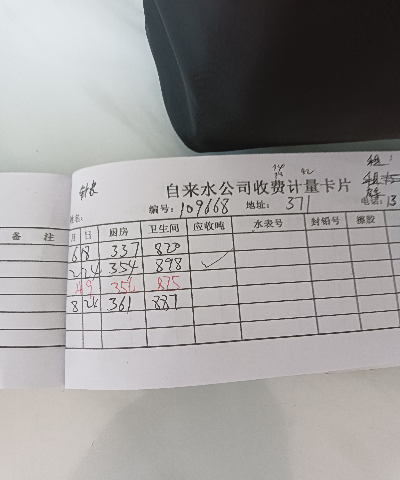 14 42
自来水公司收费计量卡片
姓名: 编号: 109668 地址: 371 电话: 13
备 注 月 日 厨房 卫生间 应收吨 水表号 封铅号 擦胶
6 18 337 820
2 24 354 898 ✓
356 875
8 24 361 887